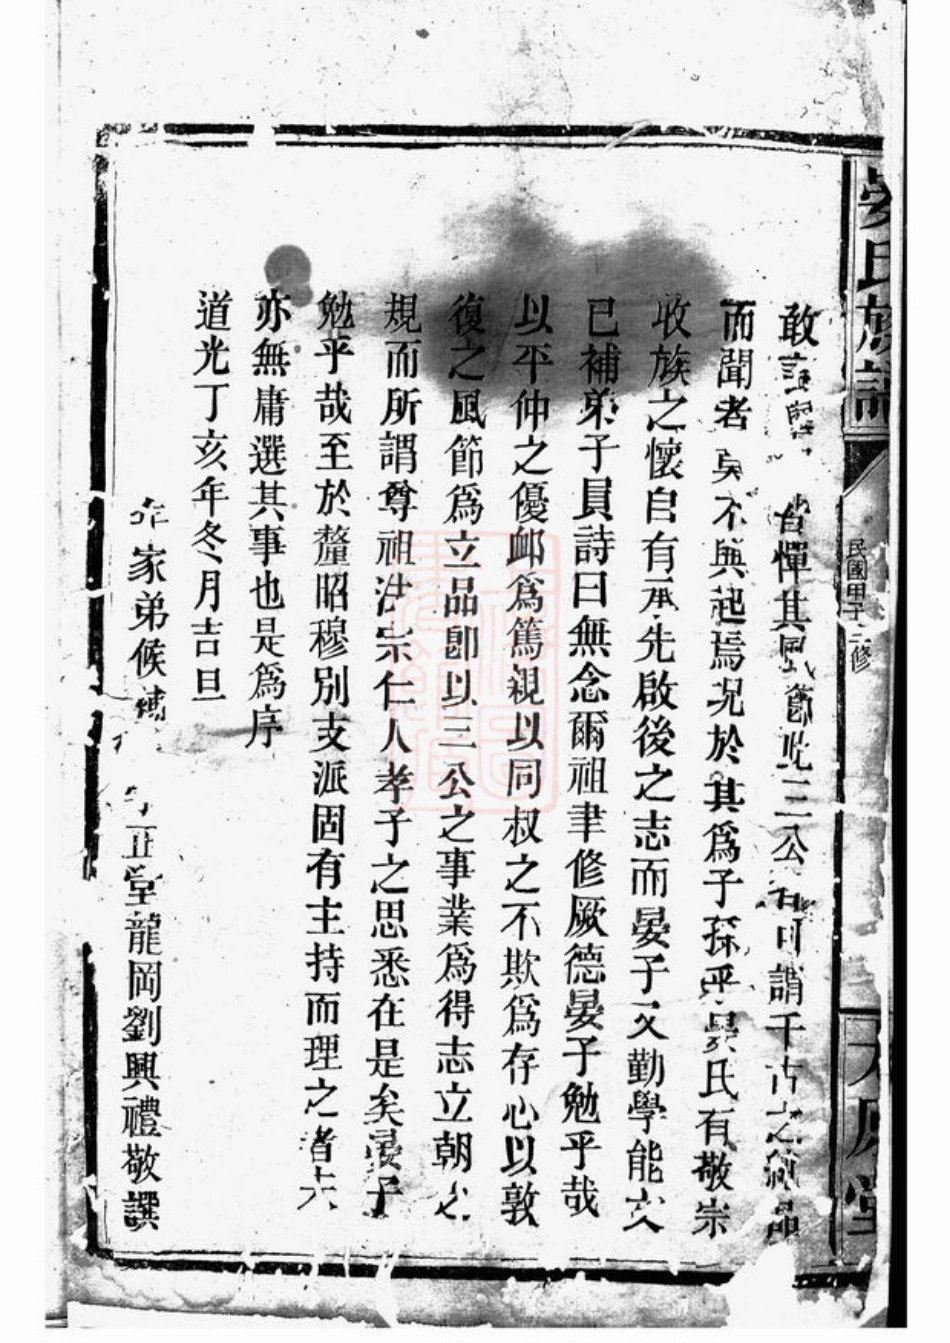 氏族譜
民國甲子三修
堂
敢憚其風節此三公者可謂千古之
而聞者莫不興起焉况於其為子孫乎晏氏有敬宗
收族之懷自有承先啟後之志而晏子又勤學能文
已補弟子員詩曰無念爾祖聿修厥德晏子勉乎哉
以平仲之優邮為篤親以同叔之不欺為存心以敦
復之風節為立品卽以三公之事業為得志立朝之
規而所謂尊祖法宗仁人孝子之思悉在是矣晏子
勉乎哉至於釐昭穆別支派固有主持而理之者夫
亦無庸選其事也是為序
道光丁亥年冬月吉旦
年家弟候補正堂龍岡劉興禮敬譔